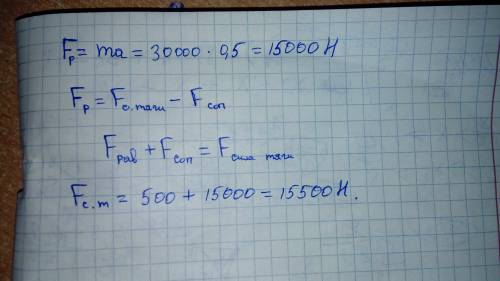 Fр = ma = 30000 · 0,5 = 15000 Н
Fр = Fс.тяги − Fсоп
Fрав + Fсоп = Fсила тяги
Fс.т = 500 + 15000 = 15500 Н.